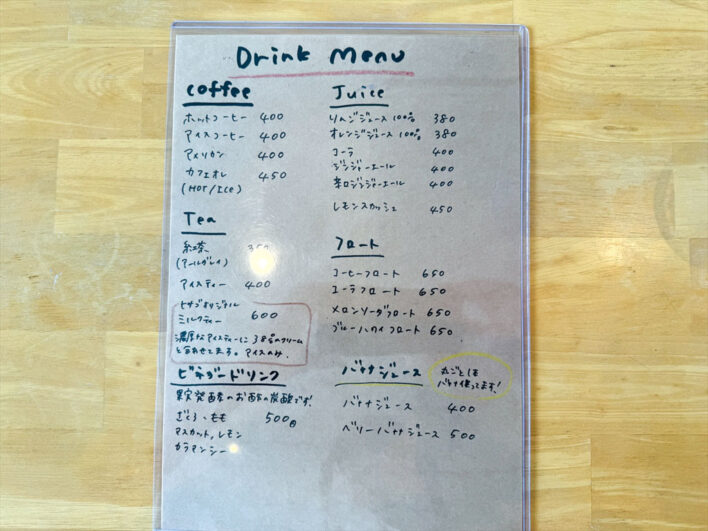 Drink Menu
Coffee
ホットコーヒー 400
アイスコーヒー 400
アメリカン 400
カフェオレ 450
(HOT/ICE)
Tea
紅茶
(アールグレイ)
アイスティー 400
オリジナル
ミルクティー 600
濃厚なアイスティーに38%のクリーム
と合わせてます。アイスのみ.
ビネガードリンク
果実発酵のお酢の炭酸です!
ざくろ・もも 500円
マスカット,レモン
カラマンシー
Juice
りんごジュース 100% 380
オレンジジュース 100% 380
コーラ 400
ジンジャーエール 400
辛口ジンジャーエール 400
レモンスカッシュ 450
フロート
コーヒーフロート 650
コーラフロート 650
メロンソーダフロート 650
ブルーハワイフロート 650
バナナジュース
丸ごと1本
バナナ使ってます!
バナナジュース 400
ベリーバナナジュース 500